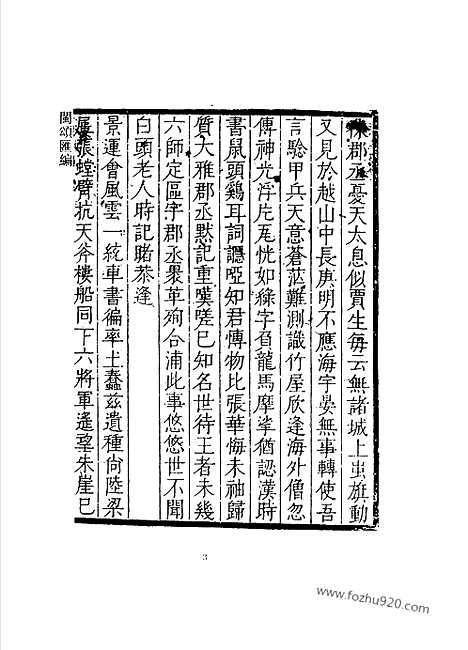 陳郡丞憂天太息似賈生每云無諸城上蚩旗動
又見於越山中長庚明不應海宇晏無事轉使吾
言驗甲兵天意蒼茫難測識竹屋欣逢海外僧忽
傳神光浮片瓦恍如綠字負龍馬摩挲猶認漢時
書鼠頭鷄耳詞譌啞知君愽物比張華悔未袖歸
質大雅郡丞默記重嘆嗟已知名世待王者未幾
六師定區宇郡丞裹革殉合浦此事悠悠世不聞
白頭老人時記睹恭逢
景運會風雲一統車書徧率土蠢兹遺種尙陸梁
屢張螳臂抗天斧樓船同下六將軍遙望朱崖已
閩頌匯編
3
www.fozhu920.com